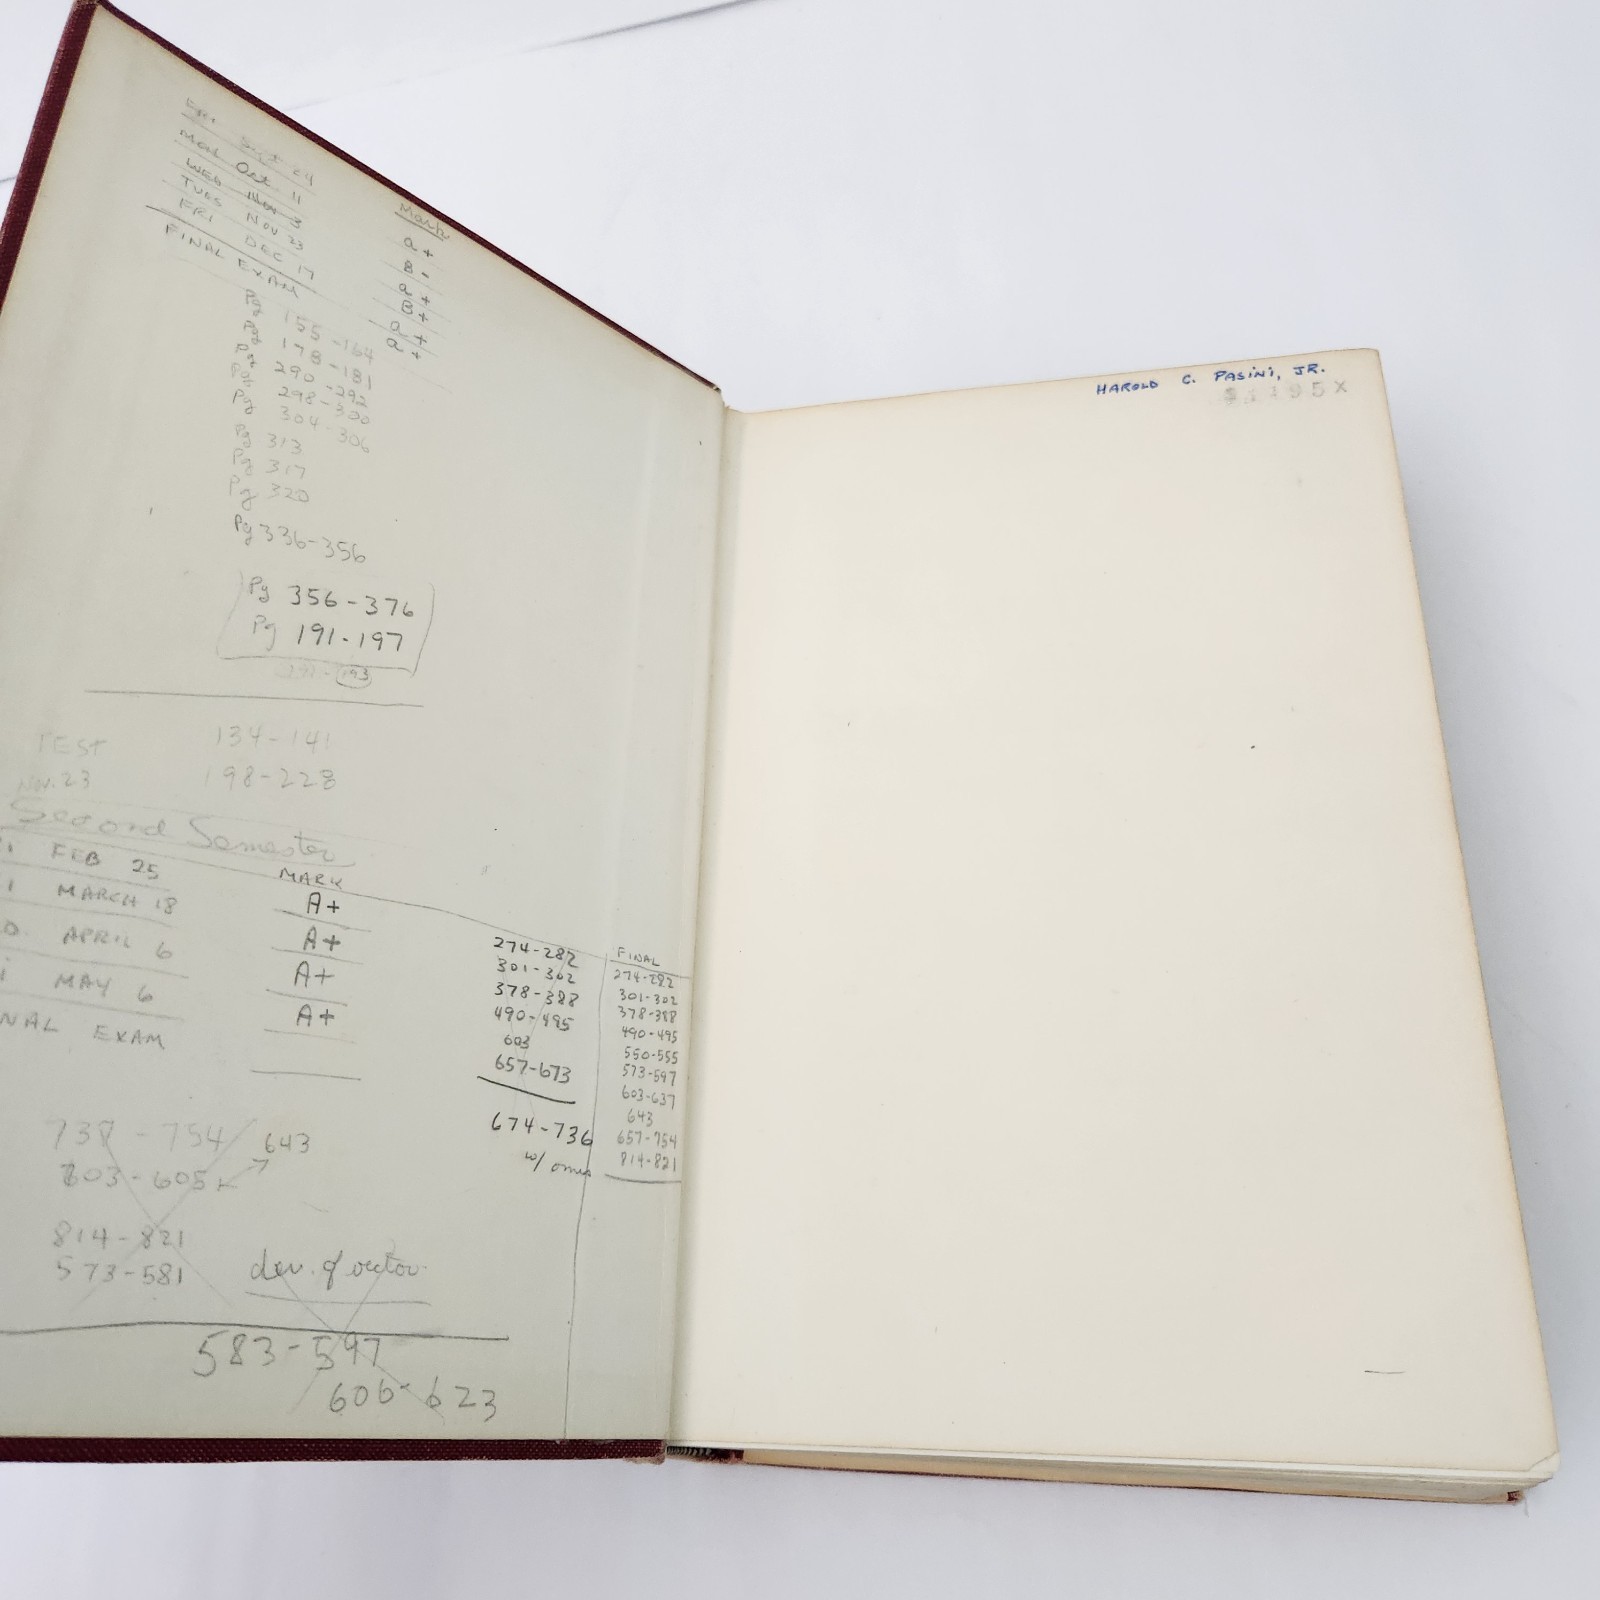 Sept 24
Mon Oct 11
WED Nov 3
TUES NOV 23
FRI DEC 17
FINAL EXAM
Mark
a+
B-
a+
B+
a+
a+
Pg 155-164
Pg 178-181
Pg 290-292
Pg 298-300
Pg 304-306
Pg 313
Pg 317
Pg 320
Pg 336-356
Pg 356-376
Pg 191-197
193
TEST 134-141
NOV. 23 198-228
Second Semester
MARK
FEB 25 A+
MARCH 18 A+
APRIL 6 A+
MAY 6 A+
NAL EXAM
737-754 643
603-605
814-821
573-581
der. of vector
583-597
606-623
274-282
301-302
378-388
490-495
603
657-673
674-736
w/
FINAL
274-282
301-302
378-388
490-495
550-555
573-597
603-637
643
657-754
814-821
HAROLD C. PASINI, JR.
95X